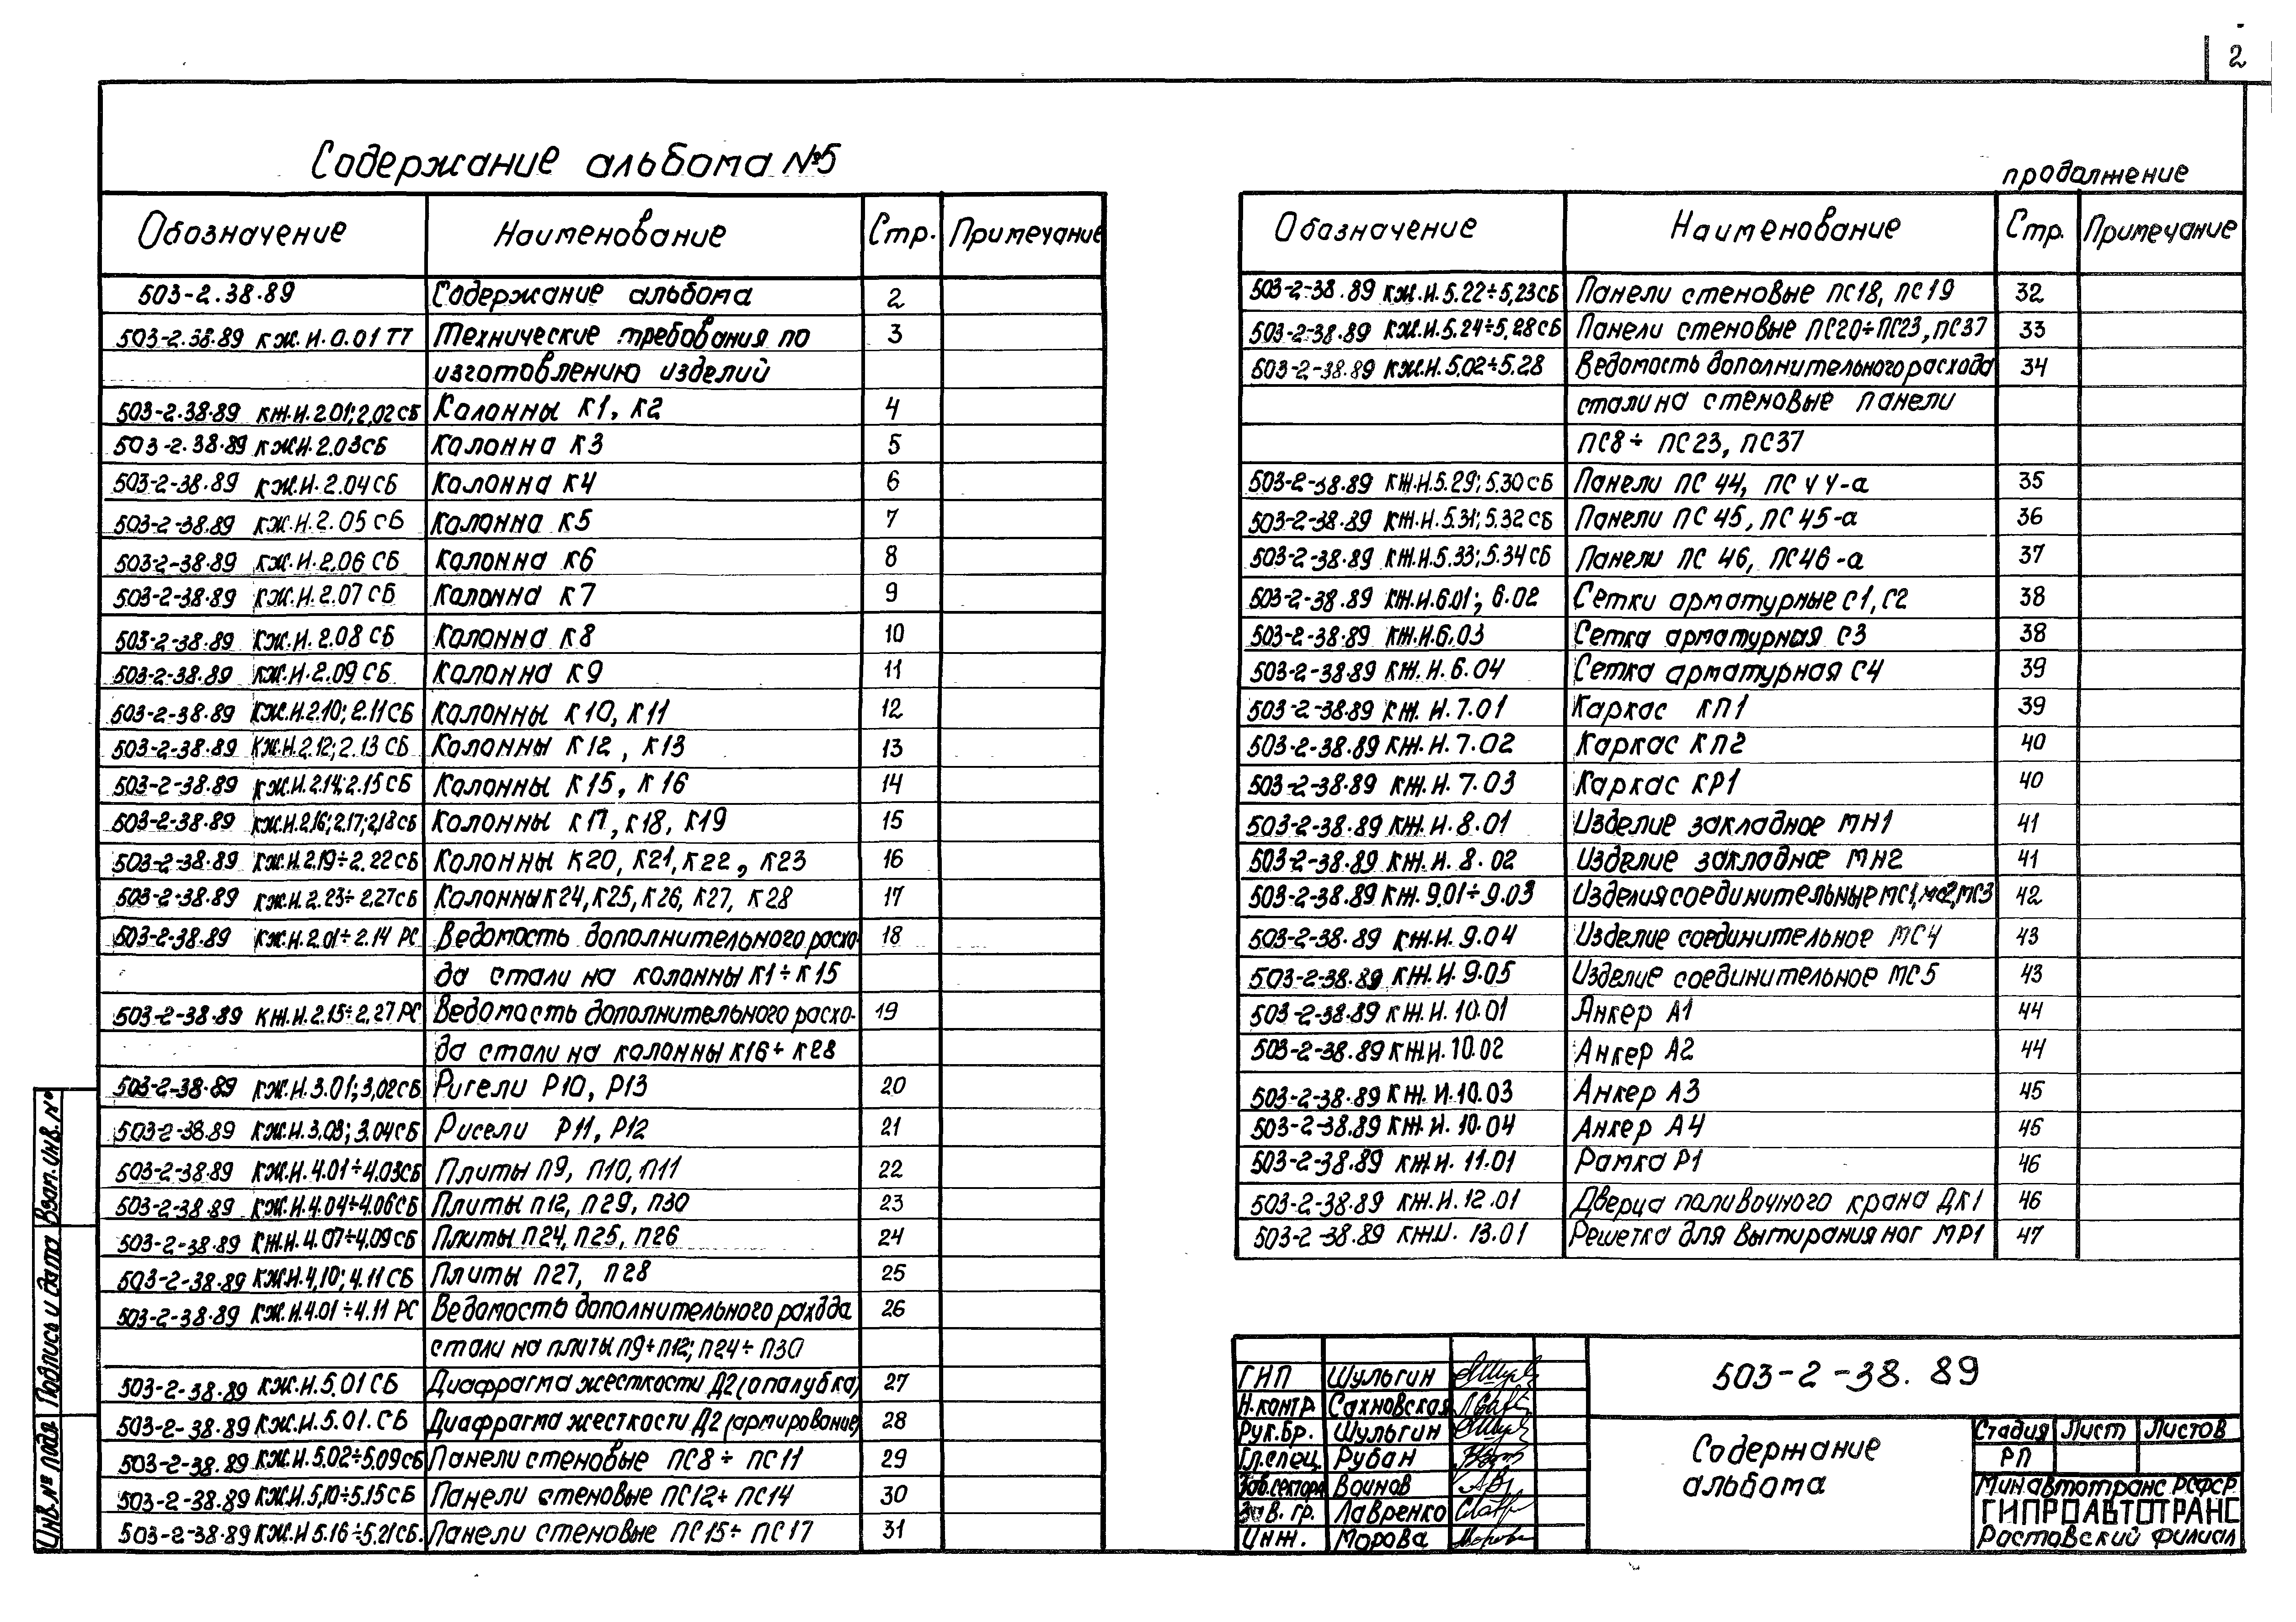 2
Содержание альбома №5
Обозначение Наименование Стр. Примечание
503-2.38.89 Содержание альбома 2
503-2.38.89 КЖ.И.0.01 ТТ Технические требования по 3
изготовлению изделий
503-2.38.89 КЖ.И.2.01; 2.02 СБ Колонны К1, К2 4
503-2.38.89 КЖИ.2.03СБ Колонна К3 5
503-2-38.89 КЖ.И.2.04 СБ Колонна К4 6
503-2-38.89 КЖ.И.2.05 СБ Колонна К5 7
503-2-38.89 КЖ.И.2.06 СБ Колонна К6 8
503-2-38.89 КЖ.И.2.07 СБ Колонна К7 9
503-2-38.89 КЖ.И.2.08 СБ Колонна К8 10
503-2-38.89 КЖ.И.2.09 СБ Колонна К9 11
503-2-38.89 КЖ.И.2.10; 2.11 СБ Колонны К10, К11 12
503-2-38.89 КЖ.И.2.12; 2.13 СБ Колонны К12, К13 13
503-2-38.89 КЖ.И.2.14; 2.15 СБ Колонны К15, К16 14
503-2-38.89 КЖ.И.2.16; 2.17; 2.18 СБ Колонны К17, К18, К19 15
503-2-38.89 КЖ.И.2.19÷2.22 СБ Колонны К20, К21, К22, К23 16
503-2-38.89 КЖ.И.2.23÷2.27 СБ Колонны К24, К25, К26, К27, К28 17
503-2-38.89 КЖ.И.2.01÷2.14 РС Ведомость дополнительного расхо- 18
да стали на колонны К1÷К15
503-2-38.89 КЖ.И.2.15÷2.27 РС Ведомость дополнительного расхо- 19
да стали на колонны К16÷К28
503-2-38.89 КЖ.И.3.01; 3.02 СБ Ригели Р10, Р13 20
503-2-38.89 КЖ.И.3.03; 3.04 СБ Рисели Р11, Р12 21
503-2-38.89 КЖ.И.4.01÷4.03 СБ Плиты П9, П10, П11 22
503-2-38.89 КЖ.И.4.04÷4.06 СБ Плиты П12, П29, П30 23
503-2-38.89 КЖ.И.4.07÷4.09 СБ Плиты П24, П25, П26 24
503-2-38.89 КЖ.И.4.10; 4.11 СБ Плиты П27, П28 25
503-2-38.89 КЖ.И.4.01÷4.11 РС Ведомость дополнительного расхода 26
стали на плиты П9÷П12; П24÷П30
503-2-38.89 КЖ.И.5.01 СБ Диафрагма жесткости Д2 (опалубка) 27
503-2-38.89 КЖ.И.5.01.СБ Диафрагма жесткости Д2 (армирование) 28
503-2-38.89 КЖ.И.5.02÷5.09 СБ Панели стеновые ПС8÷ПС11 29
503-2-38.89 КЖ.И.5.10÷5.15 СБ Панели стеновые ПС12÷ПС14 30
503-2-38.89 КЖ.И 5.16÷5.21 СБ. Панели стеновые ПС15÷ПС17 31
продолжение
Обозначение Наименование Стр. Примечание
503-2-38.89 КЖ.И.5.22÷5.23 СБ Панели стеновые ПС18, ПС19 32
503-2-38.89 КЖ.И.5.24÷5.28 СБ Панели стеновые ПС20÷ПС23, ПС37 33
503-2-38.89 КЖ.И.5.02÷5.28 Ведомость дополнительного расхода 34
стали на стеновые панели
ПС8÷ПС23, ПС37
503-2-38.89 КЖ.И.5.29; 5.30 СБ Панели ПС 44, ПС 44-а 35
503-2-38.89 КЖ.И.5.31; 5.32 СБ Панели ПС 45, ПС 45-а 36
503-2-38.89 КЖ.И.5.33; 5.34 СБ Панели ПС 46, ПС46-а 37
503-2-38.89 КЖ.И.6.01; 6.02 Сетки арматурные С1, С2 38
503-2-38.89 КЖ.И.6.03 Сетка арматурная С3 38
503-2-38.89 КЖ.И.6.04 Сетка арматурная С4 39
503-2-38.89 КЖ.И.7.01 Каркас КП1 39
503-2-38.89 КЖ.И.7.02 Каркас КП2 40
503-2-38.89 КЖ.И.7.03 Каркас КР1 40
503-2-38.89 КЖ.И.8.01 Изделие закладное МН1 41
503-2-38.89 КЖ.И.8.02 Изделие закладное МН2 41
503-2-38.89 КЖ.9.01÷9.03 Изделия соединительные МС1, МС2, МС3 42
503-2-38.89 КЖ.И.9.04 Изделие соединительное МС4 43
503-2-38.89 КЖ.И.9.05 Изделие соединительное МС5 43
503-2-38.89 КЖ.И.10.01 Анкер А1 44
503-2-38.89 КЖ.И.10.02 Анкер А2 44
503-2-38.89 КЖ.И.10.03 Анкер А3 45
503-2-38.89 КЖ.И.10.04 Анкер А4 45
503-2-38.89 КЖ.И.11.01 Рамка Р1 46
503-2-38.89 КЖ.И.12.01 Дверца поливочного крана ДК1 46
503-2-38.89 КЖИ.13.01 Решетка для вытирания ног МР1 47
ГИП Шульгин
Н.контр. Сахновская
Рук.бр. Шульгин
Гл.спец. Рубан
Зав.сектора Воинов
Зав.гр. Лавренко
Инж. Морова
503-2-38.89
Содержание
альбома
Стадия Лист Листов
РП
Минавтотранс РСФСР
ГИПРОАВТОТРАНС
Ростовский филиал
Взам.инв.№
Подпись и дата
Инв.№ подл